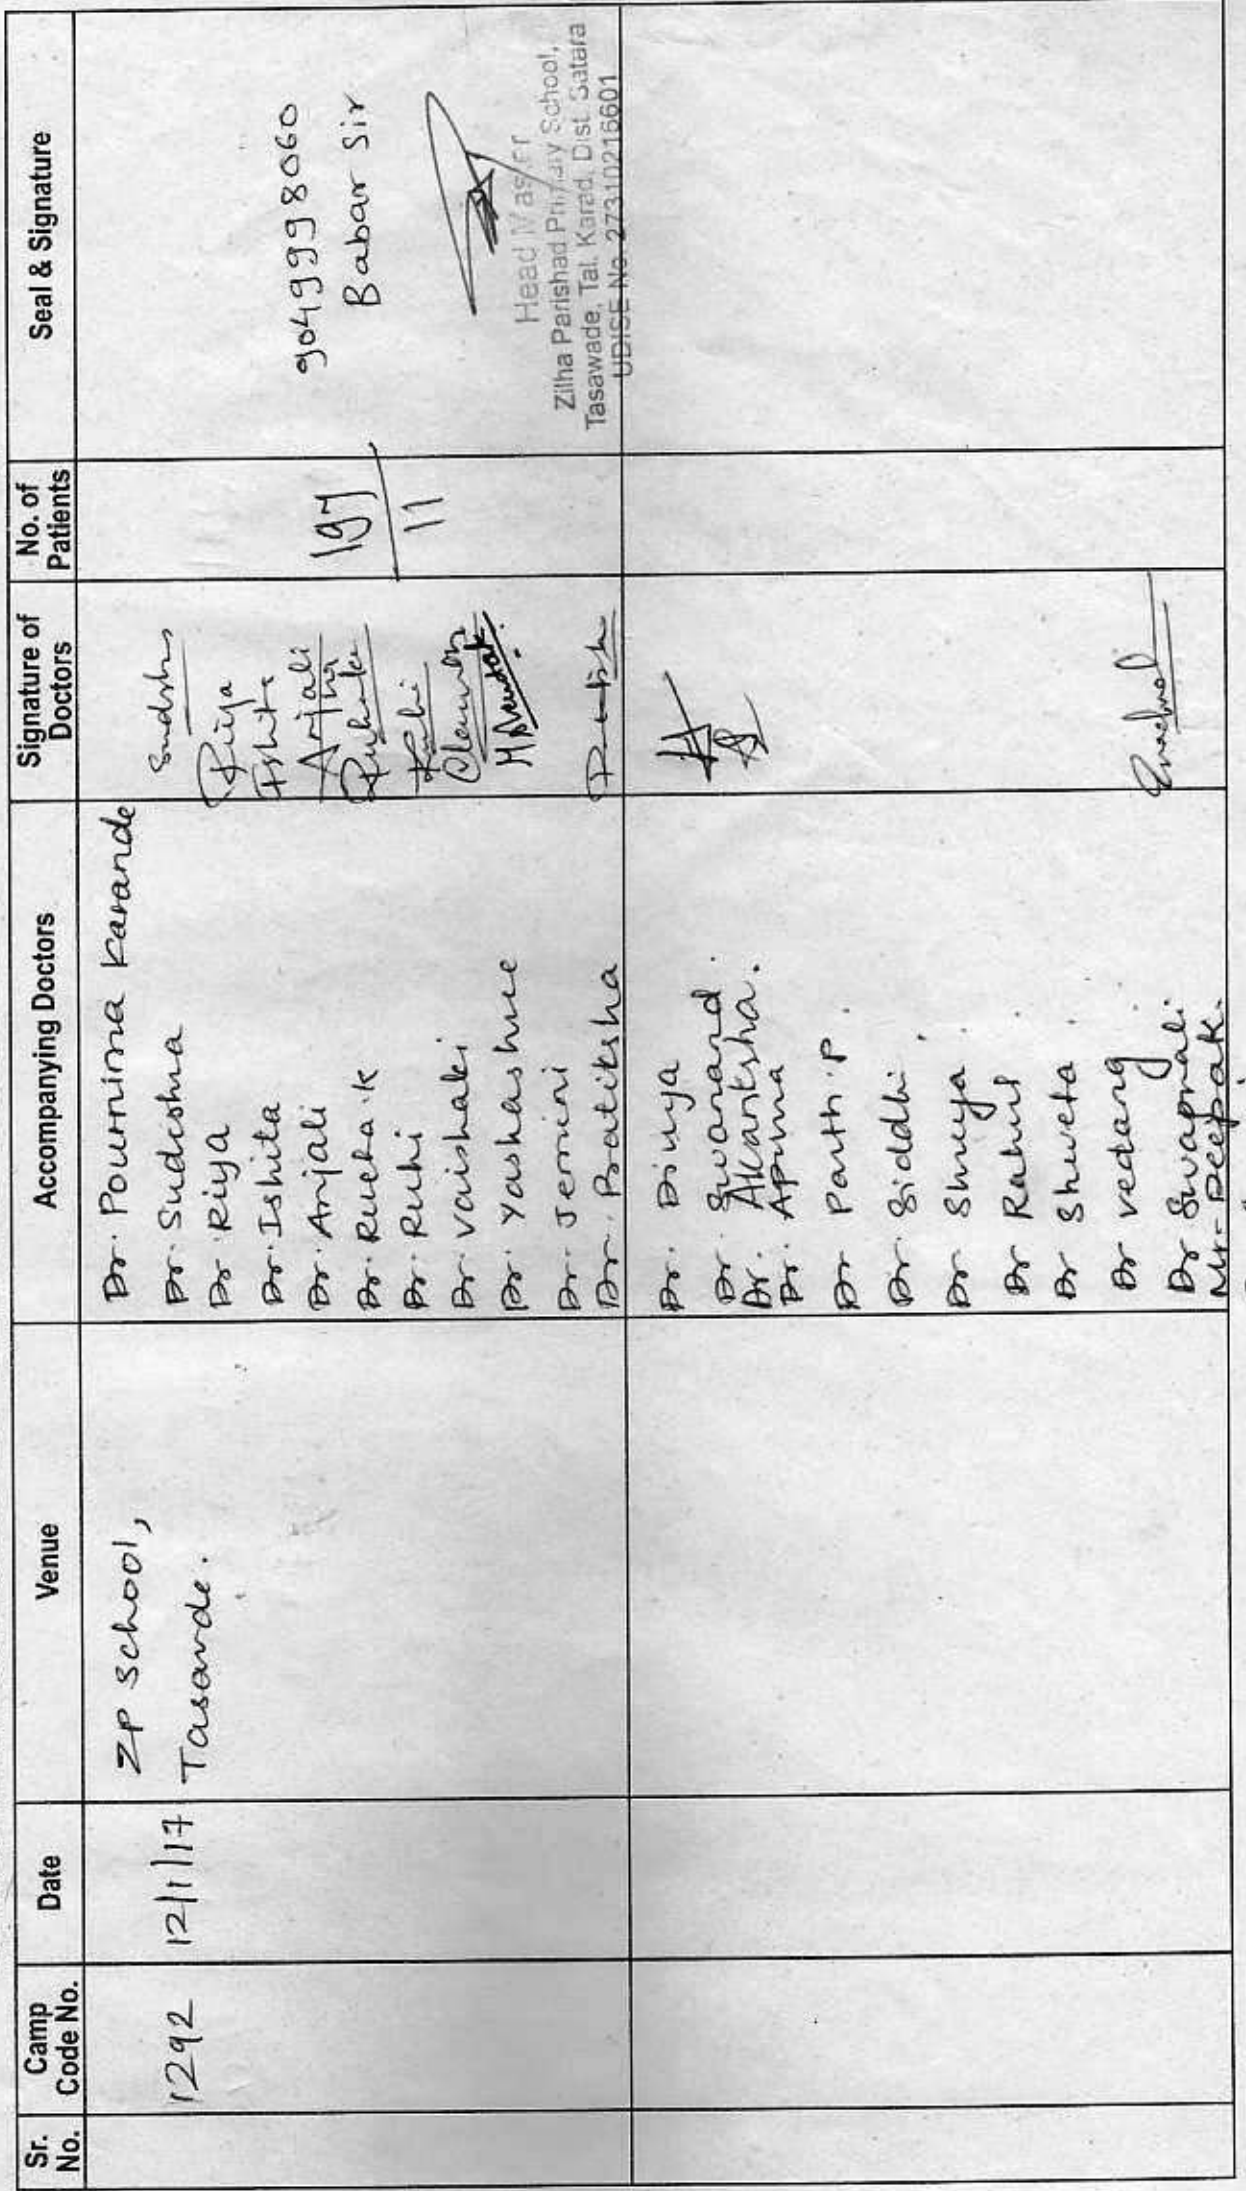 Sr. No.
Camp Code No.
Date
Venue
Accompanying Doctors
Signature of Doctors
No. of Patients
Seal & Signature
1292
12/1/17
ZP School,
Tasavde.
Dr. Pournima Karande
Dr. Sudeshna
Dr. Riya
Dr. Ishita
Dr. Anjali
Dr. Rucha.K
Dr. Ruhi
Dr. Vaishali
Dr. Yashashree
Dr. Jemini
Dr. Pratiksha
Riya
Ishita
Anjali
197
11
9049998060
Babar Sir
Head Master
Zilha Parishad Primary School,
Tasawade, Tal. Karad, Dist. Satara
UDISE No. 27310216601
Dr. Divya
Dr. Swanand.
Dr. Akanksha.
Dr. Apurva
Dr Parth.P.
Dr. Siddhi
Dr Shreya.
Dr Rahul.
Dr Shweta.
Dr Vedang
Dr Swapnali
Mr. Deepak.